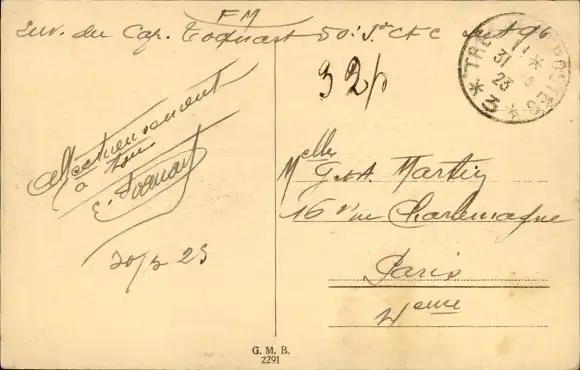 FM
Env. du Cap. Toquart 50: CFC
32p
TRE POSTES
31
23
* 3 *
Affectueusement
à tous
E. Toquart
30/5 23
Melle G et A Martin
16 rue Charlemagne
Paris
4eme
G. M. B.
2291